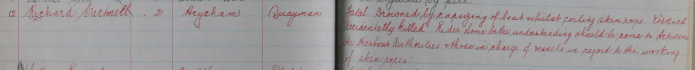 12 Richard Carmell . 2 Heysham Quayman
Fatal Drowned by capsizing of boat whilst coiling skem rope. Verdict
Accidentally Killed. Rider Some better understanding should be come to between
the Harbour Authorities & those in charge of vessels in regard to the working
of skem ropes.